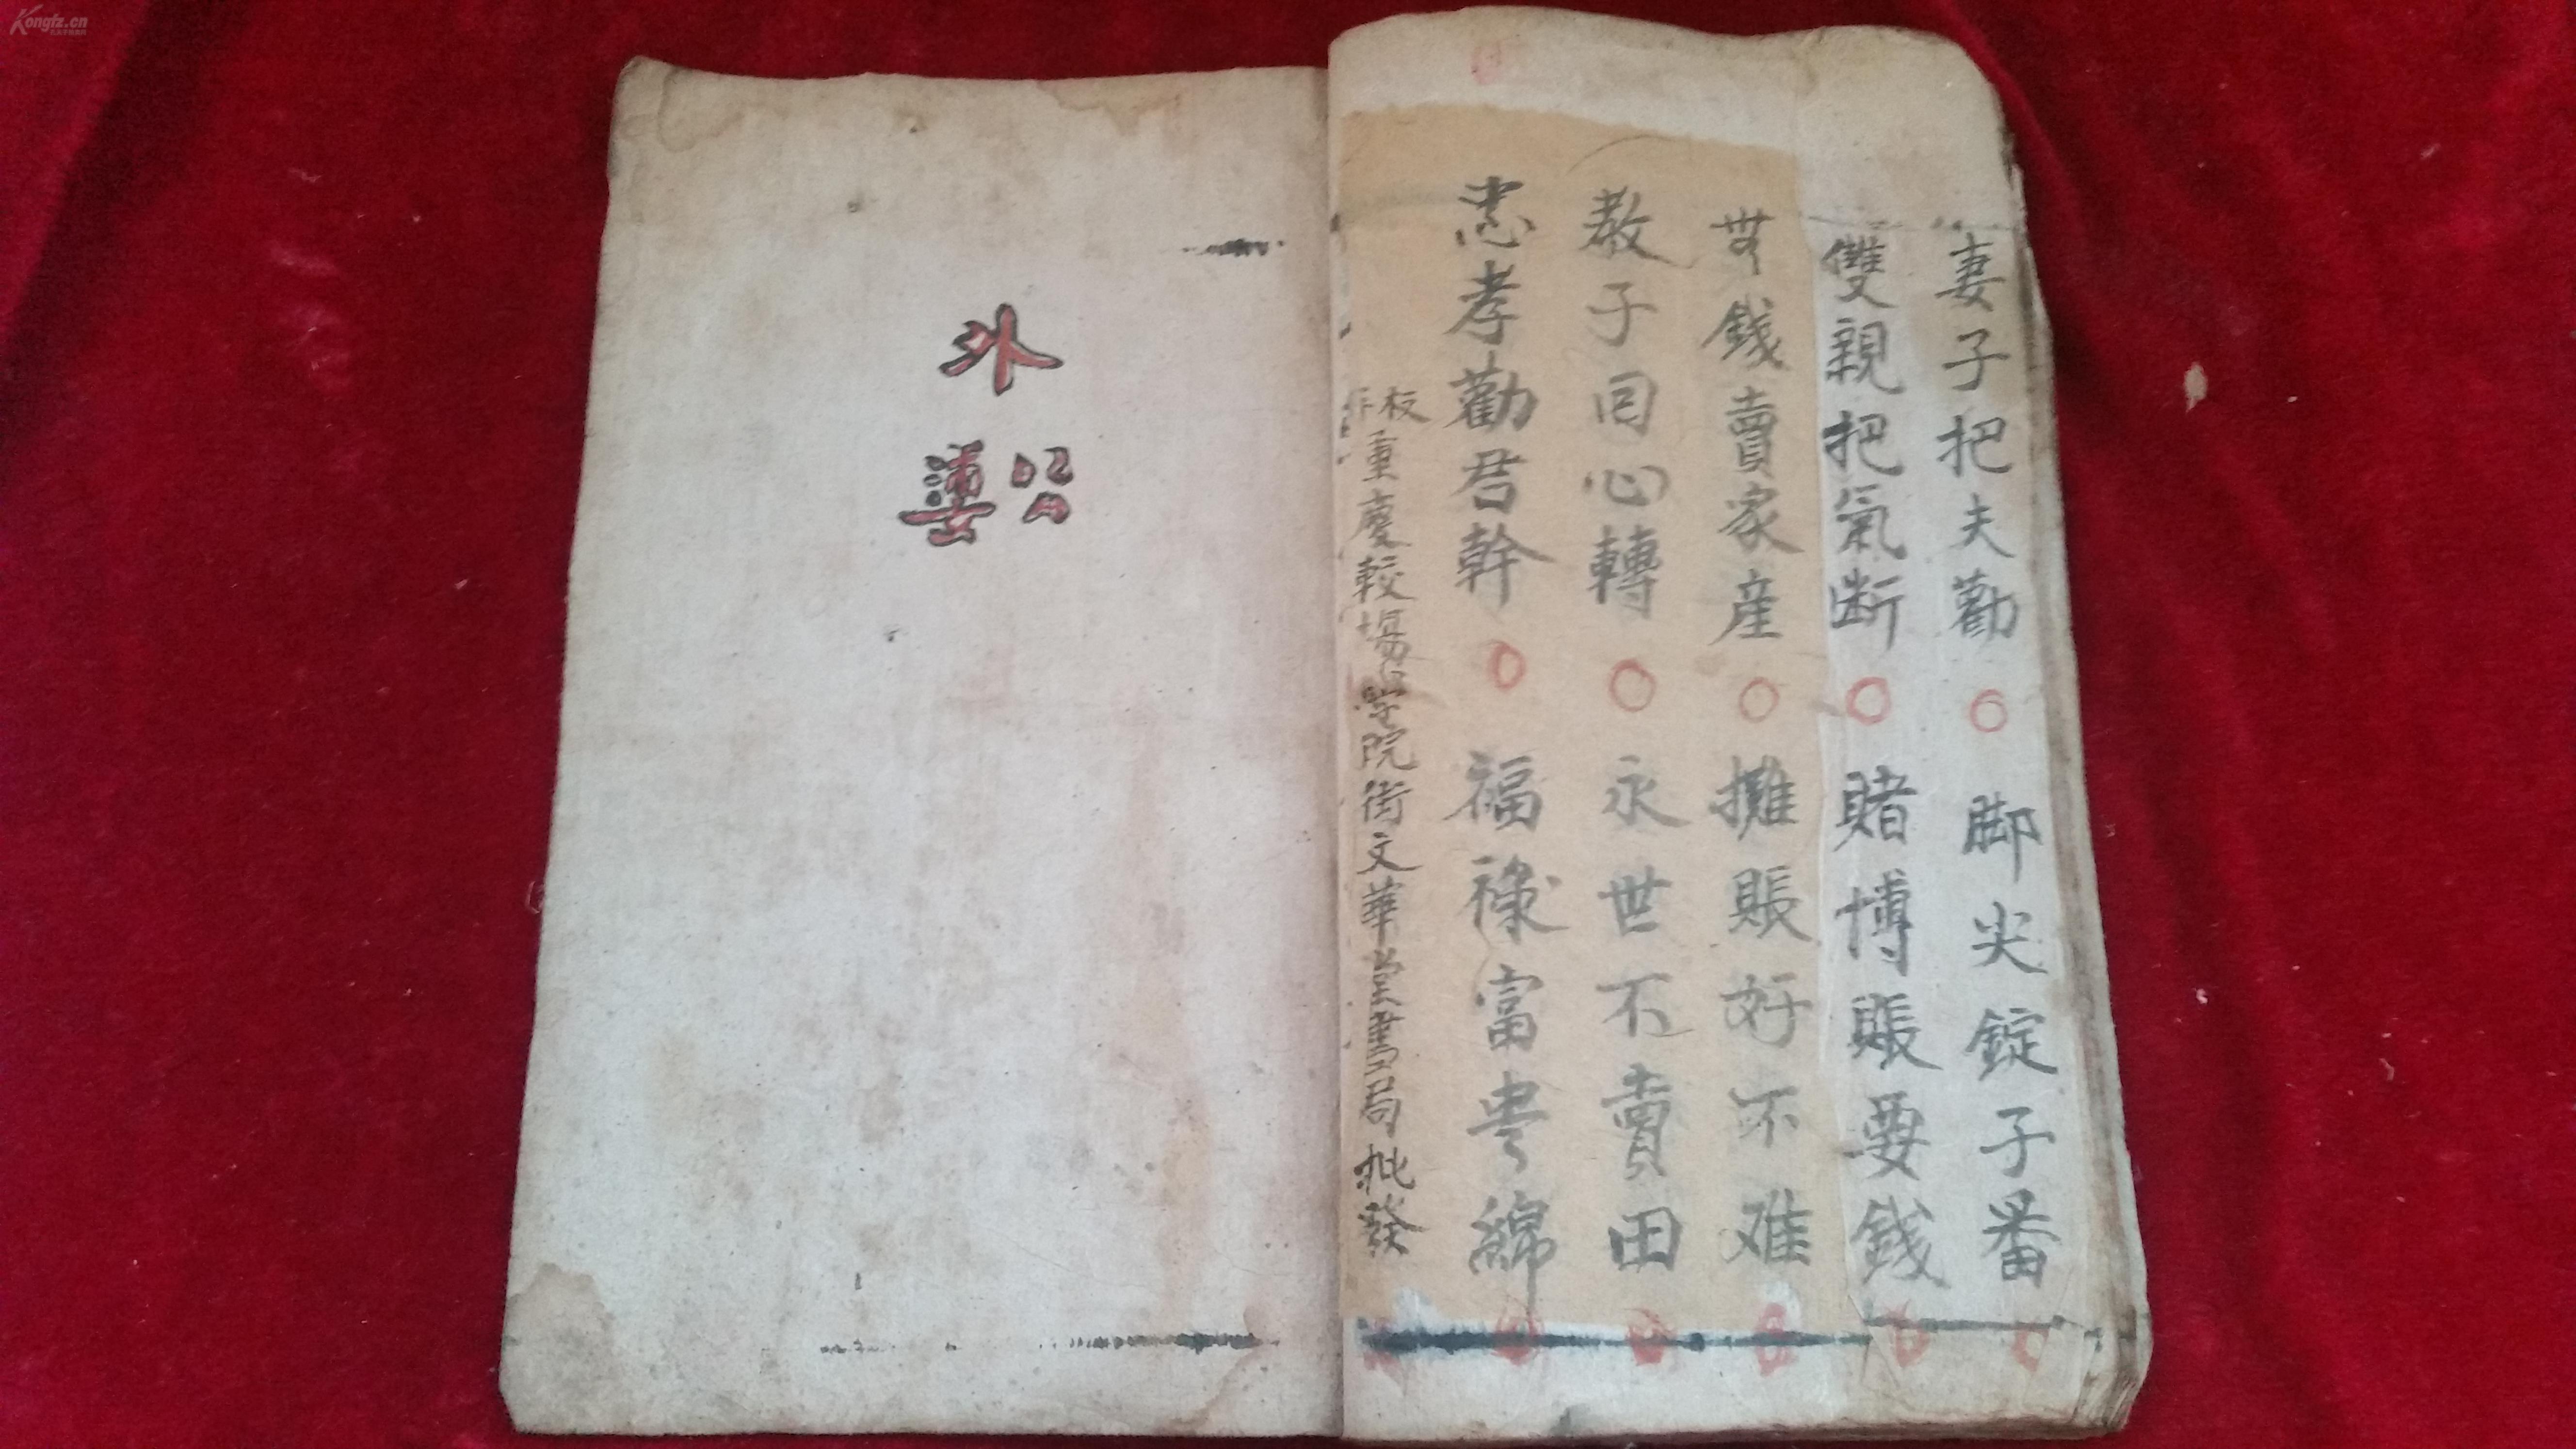 妻子把夫勸○脚尖錠子番
雙親把氣断○賭博賬要錢
無錢賣家産○攤賬好不难
教子回心轉○永世不賣田
忠孝勸君幹○福祿富貴綿
板
重慶較場學院街文華堂書局批發
外
公
婆
Kongfz.cn